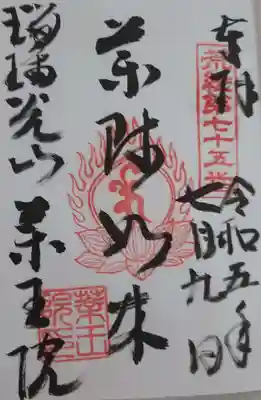 奉拝
荒綾第七十五番
令和五年
七月九日
薬師如来
瑠璃光山 薬王院